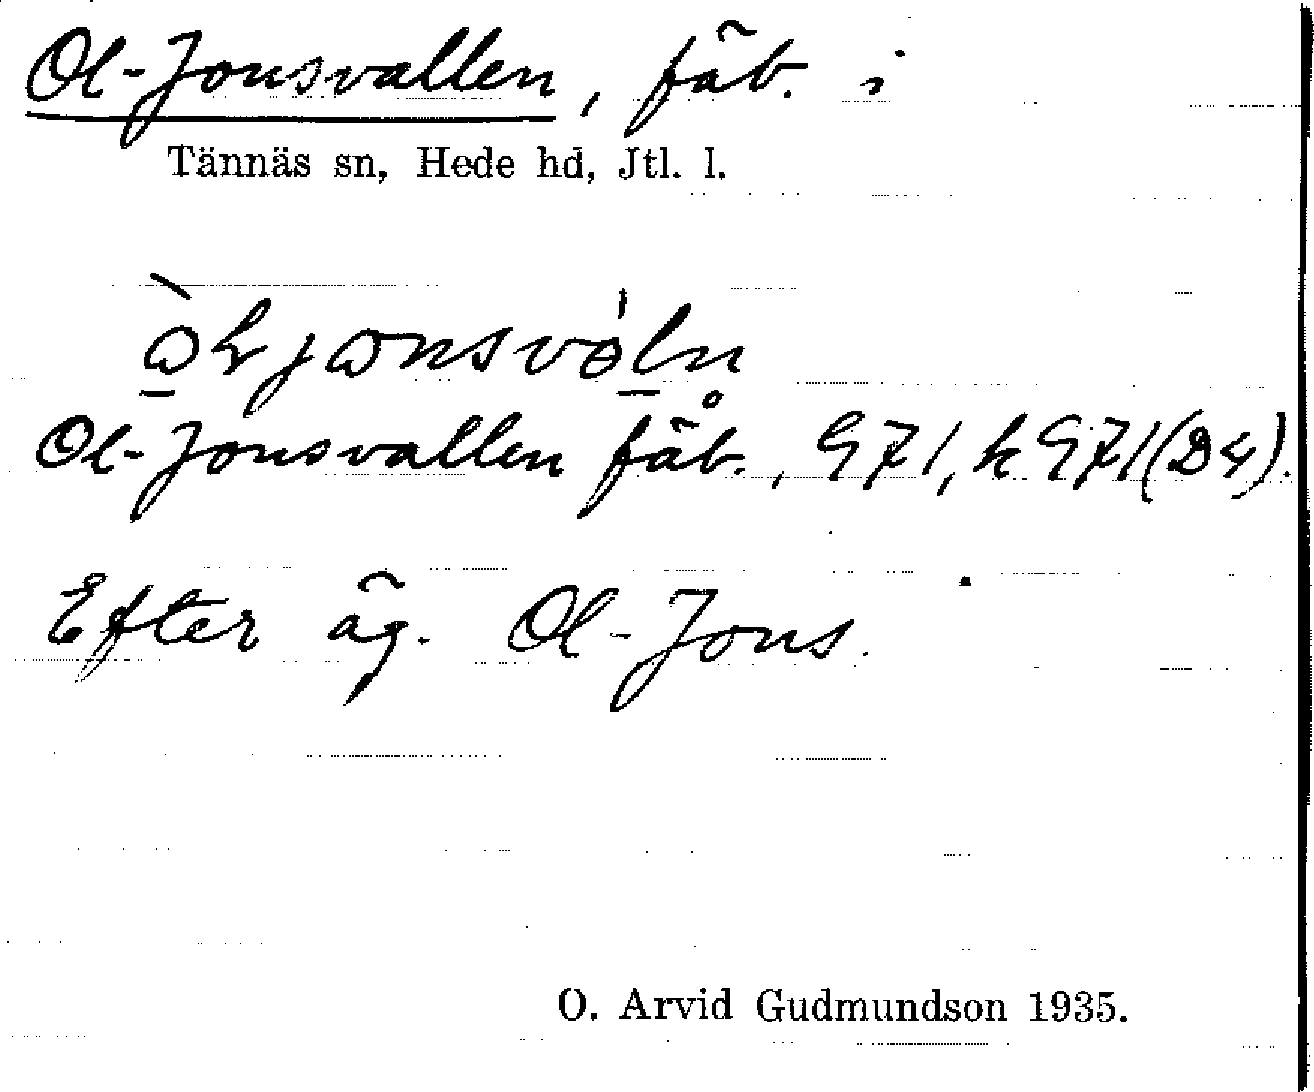 Ol-Jonsvallen, fäb. i
Tännäs sn, Hede hd, Jtl. l.
Ol-Jonsvallen fäb., G71, k G71 (D4).
Efter äg. Ol-Jons.
O. Arvid Gudmundson 1935.